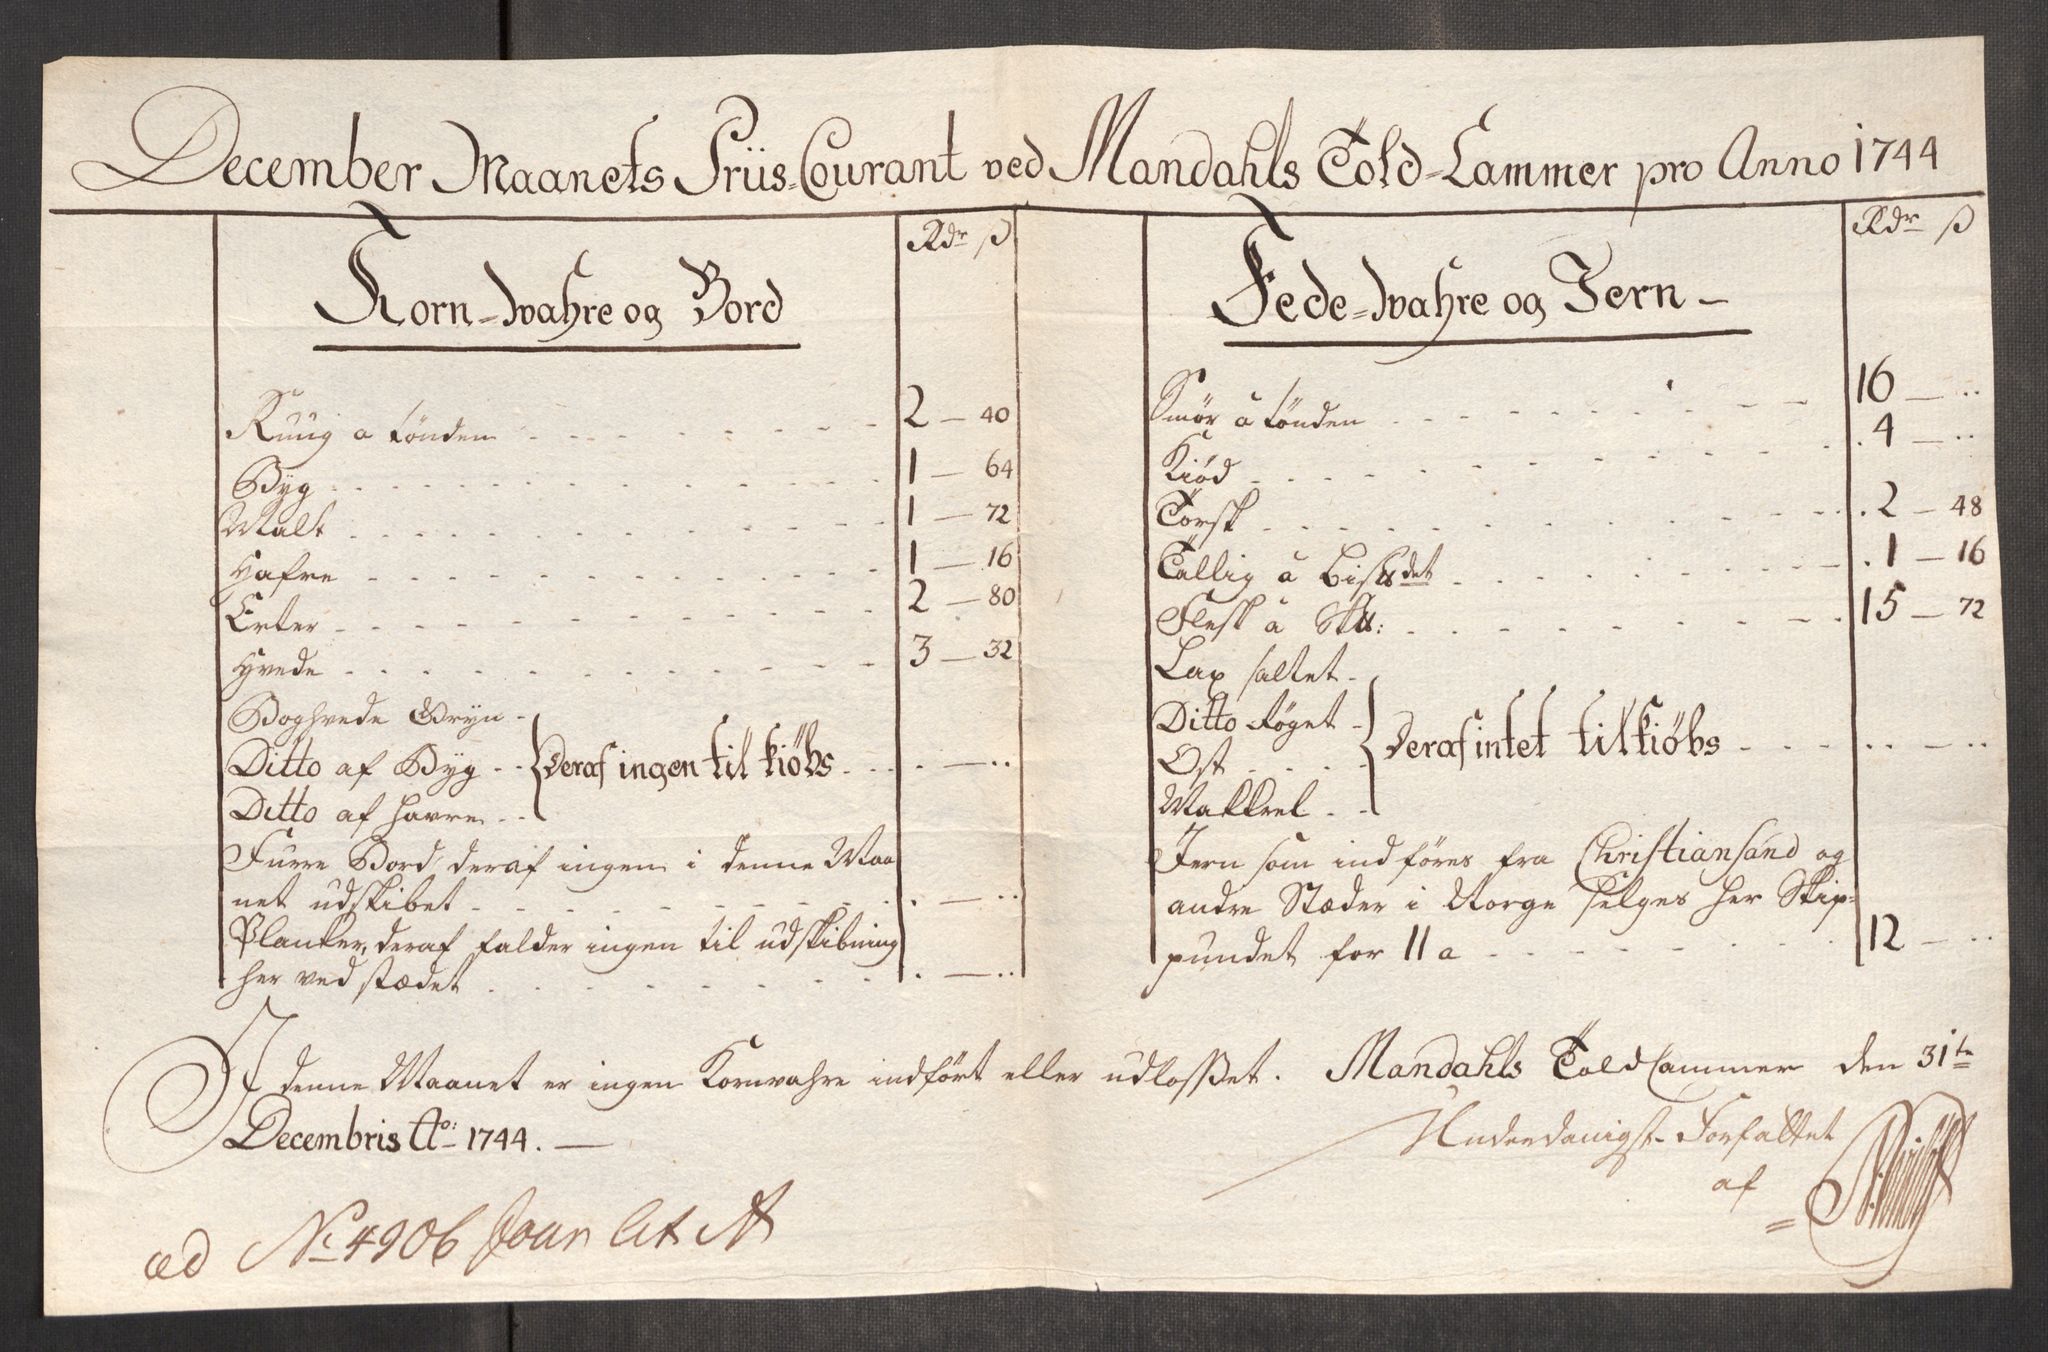 December Maanets Priis=Courant ved Mandahls Told=Cammer pro Anno 1744
Rdr ß
Korn=wahre og Bord
Ruug a tönden 2 — 40
Byg 1 — 64
Malt 1 — 72
Hafre 1 — 16
Erter 2 — 80
Hvede 3 — 32
Boghvede Gryn
Ditto af Byg
Ditto af Havre
deraf ingen til kiöbs . — ..
Furre Bord, deraf ingen i denne Maa
net udskibet . — ..
Planker, deraf falder ingen til udskibning
her ved stædet . — ..
Rdr ß
Fede=wahre og Jern —
Smör â tönden 16 — ..
Kiöd 4 — ..
Torsk 2 — 48
Tallig â 1 — 16
Flesk â 15 — 72
Lax saltet
Ditto röget
Ost
Makkrel
deraf intet til kiöbs .. — ..
Jern som indföres fra Christiansand og
andre Stæder i Norge selges her Skip=
pundet for 11 a 12 — ..
I denne Maanet er ingen Kornvahre indfört eller udlosset. Mandahls ToldCammer den 31te
Decembris Ao: 1744. —
Underdanigst Forfattet
af
ad No 4906 Jour Lit A